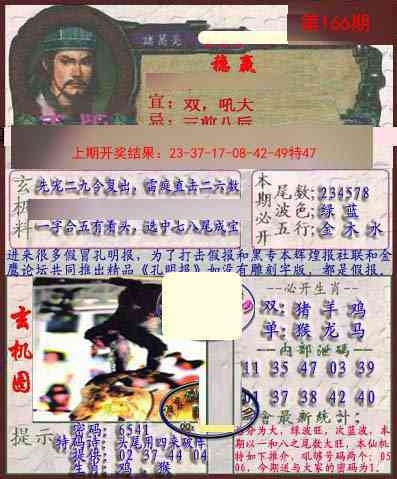 第166期
諸葛亮
稳赢
宜：双，吼大
忌：三前八后
上期开奖结果：23-37-17-08-42-49特47
玄机料
先宠二九合复出，需痴直击二六数
一字合五有看头，选中七八尾成宝
本期必开
尾数：234578
波色：绿 蓝
五行：金 木 水
进来很多假冒孔明报，为了打击假报和黑专本辉煌报社联和金
鹰论坛共同推出精品《孔明报》如没有雕刻字版，都是假报。
玄机图
必开生肖
双：猪 羊 鸡
单：猴 龙 马
内部泄码
11 35 47 03 39
01 37 38 42 40
會最新統计：
分为大，绿波旺，次蓝波，本
期以一和八之尾数大旺，本仙机
特如下推介，吼够号码两个：05
06，今期送与大家的密码为1.
提示
密码：6541
特码诗：头尾用四来破阵
提供：02 37 44 04
生肖：鸡，猴